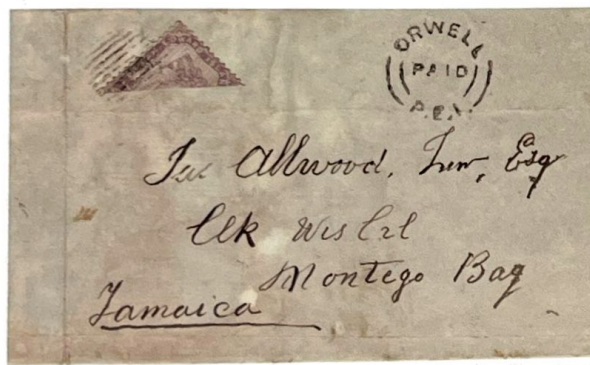 ORWELL
PAID
P.E.I.
Jas Allwood, Junr, Esq
Clk
Montego Bay
Jamaica